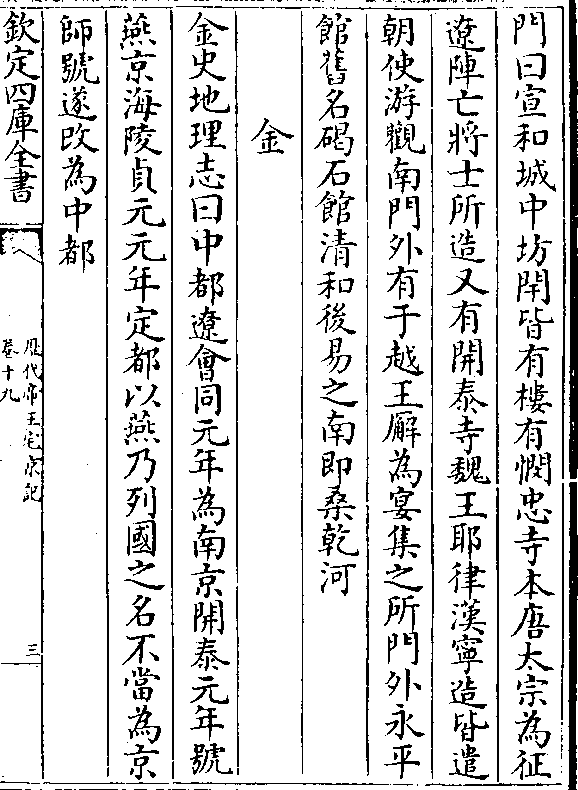 門曰宣和城中坊閈皆有樓有憫忠寺本唐太宗為征
遼陣亡將士所造又有開泰寺魏王耶律漢寧造皆遣
朝使游觀南門外有于越王廨為宴集之所門外永平
館舊名碣石館清和後易之南即桑乾河
金
金史地理志曰中都遼會同元年為南京開泰元年號
燕京海陵貞元元年定都以燕乃列國之名不當為京
師號遂改為中都
欽定四庫全書
歷代帝王宅京記
卷十九
三